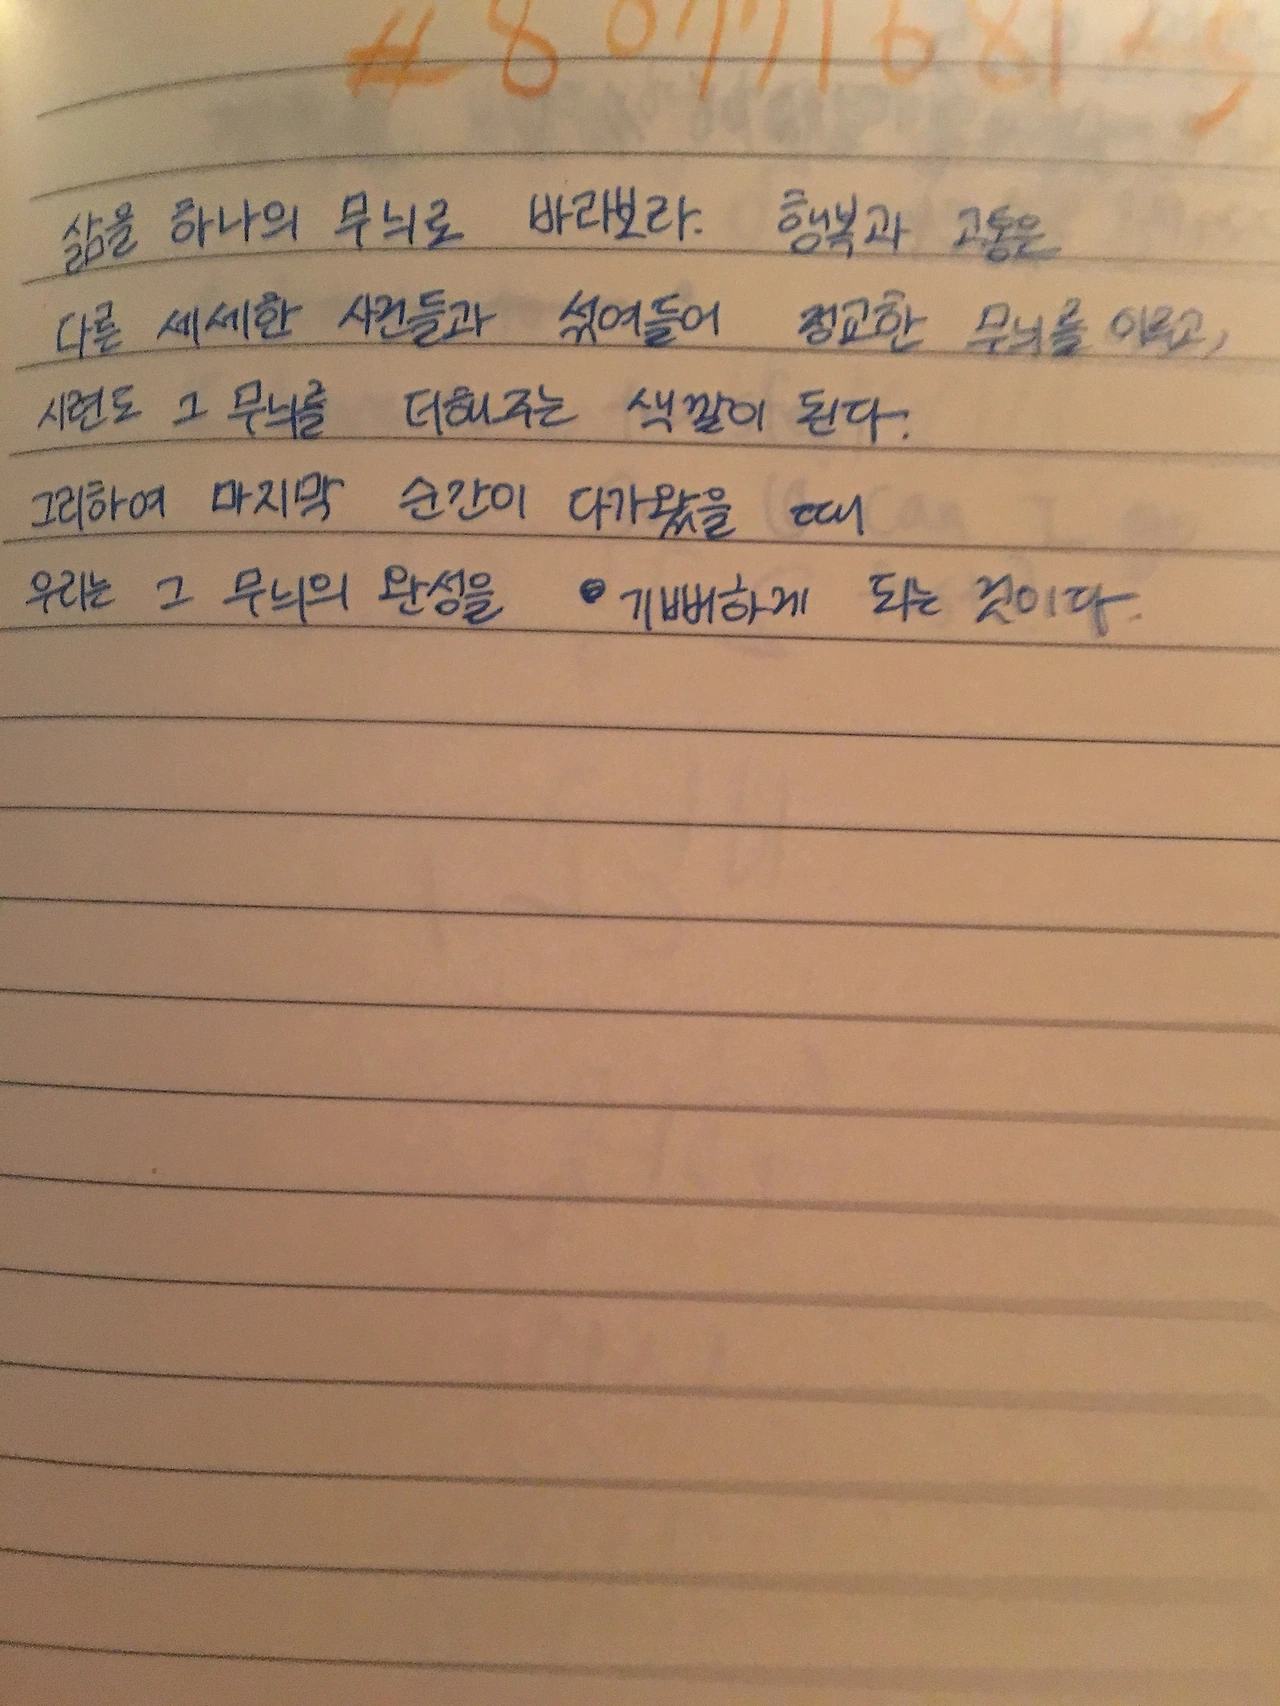 #8077168125
삶을 하나의 무늬로 바라보라. 행복과 고통은
다른 세세한 사건들과 섞여들어 정교한 무늬를 이루고,
시련도 그 무늬를 더해주는 색깔이 된다.
그리하여 마지막 순간이 다가왔을 때
우리는 그 무늬의 완성을 기뻐하게 되는 것이다.